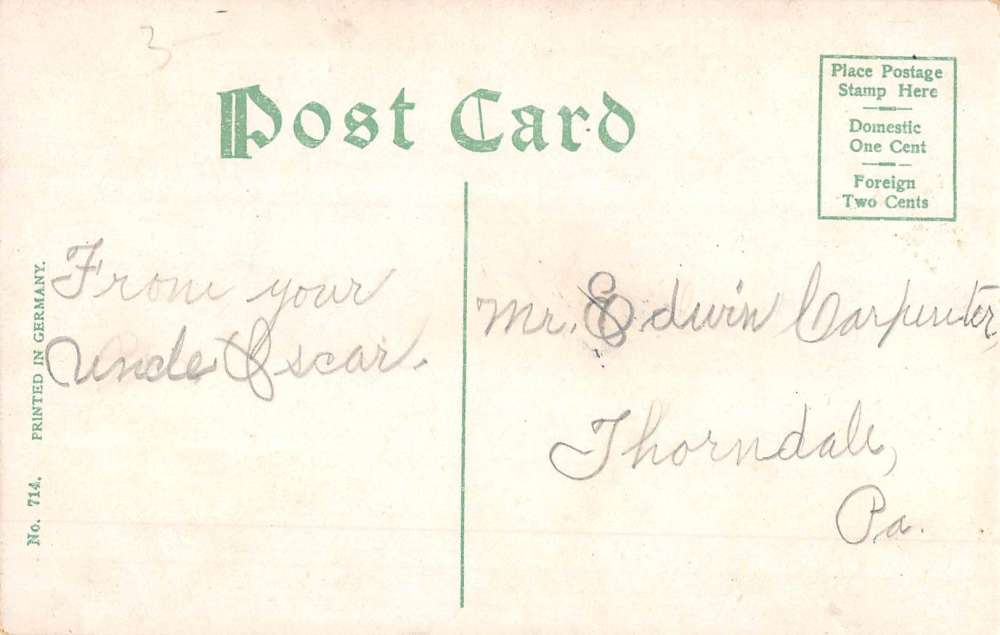 3
Post Card
Place Postage
Stamp Here
Domestic
One Cent
Foreign
Two Cents
From your
Uncle Oscar.
Mr. Edwin Carpenter,
Thorndale,
Pa.
No. 714. PRINTED IN GERMANY.